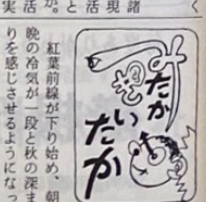 く
諸
現
活
と
か。
活
実
みたか
きい
たか
紅葉前線が下り始め、朝
晩の冷気が一段と秋の深ま
りを感じさせるようになっ